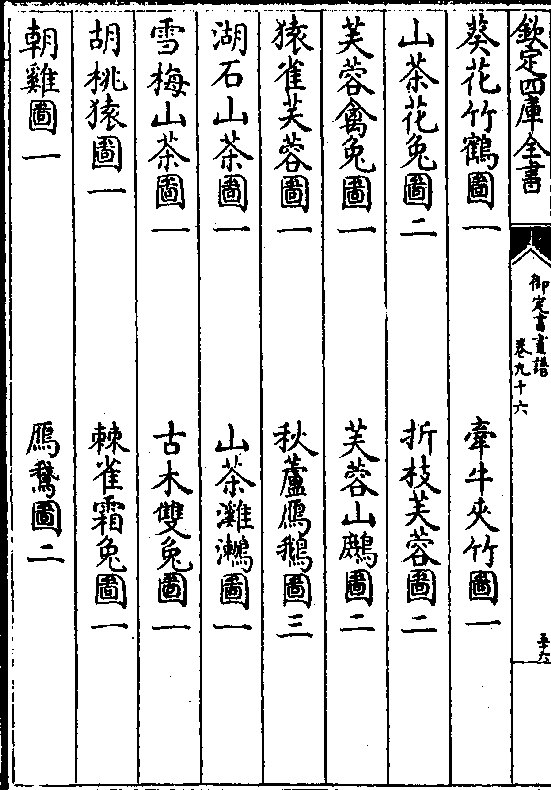 欽定四庫全書
御定書畫譜
卷九十六
葵花竹鶴圖一 牽牛夾竹圖一
山茶花兔圖二 折枝芙蓉圖二
芙蓉禽兔圖一 芙蓉山鷓圖二
猿雀芙蓉圖一 秋蘆鴈鵝圖三
湖石山茶圖一 山茶㶉鶒圖一
雪梅山茶圖一 古木雙兔圖一
胡桃猿圖一 棘雀霜兔圖一
朝雞圖一 鴈鶩圖二